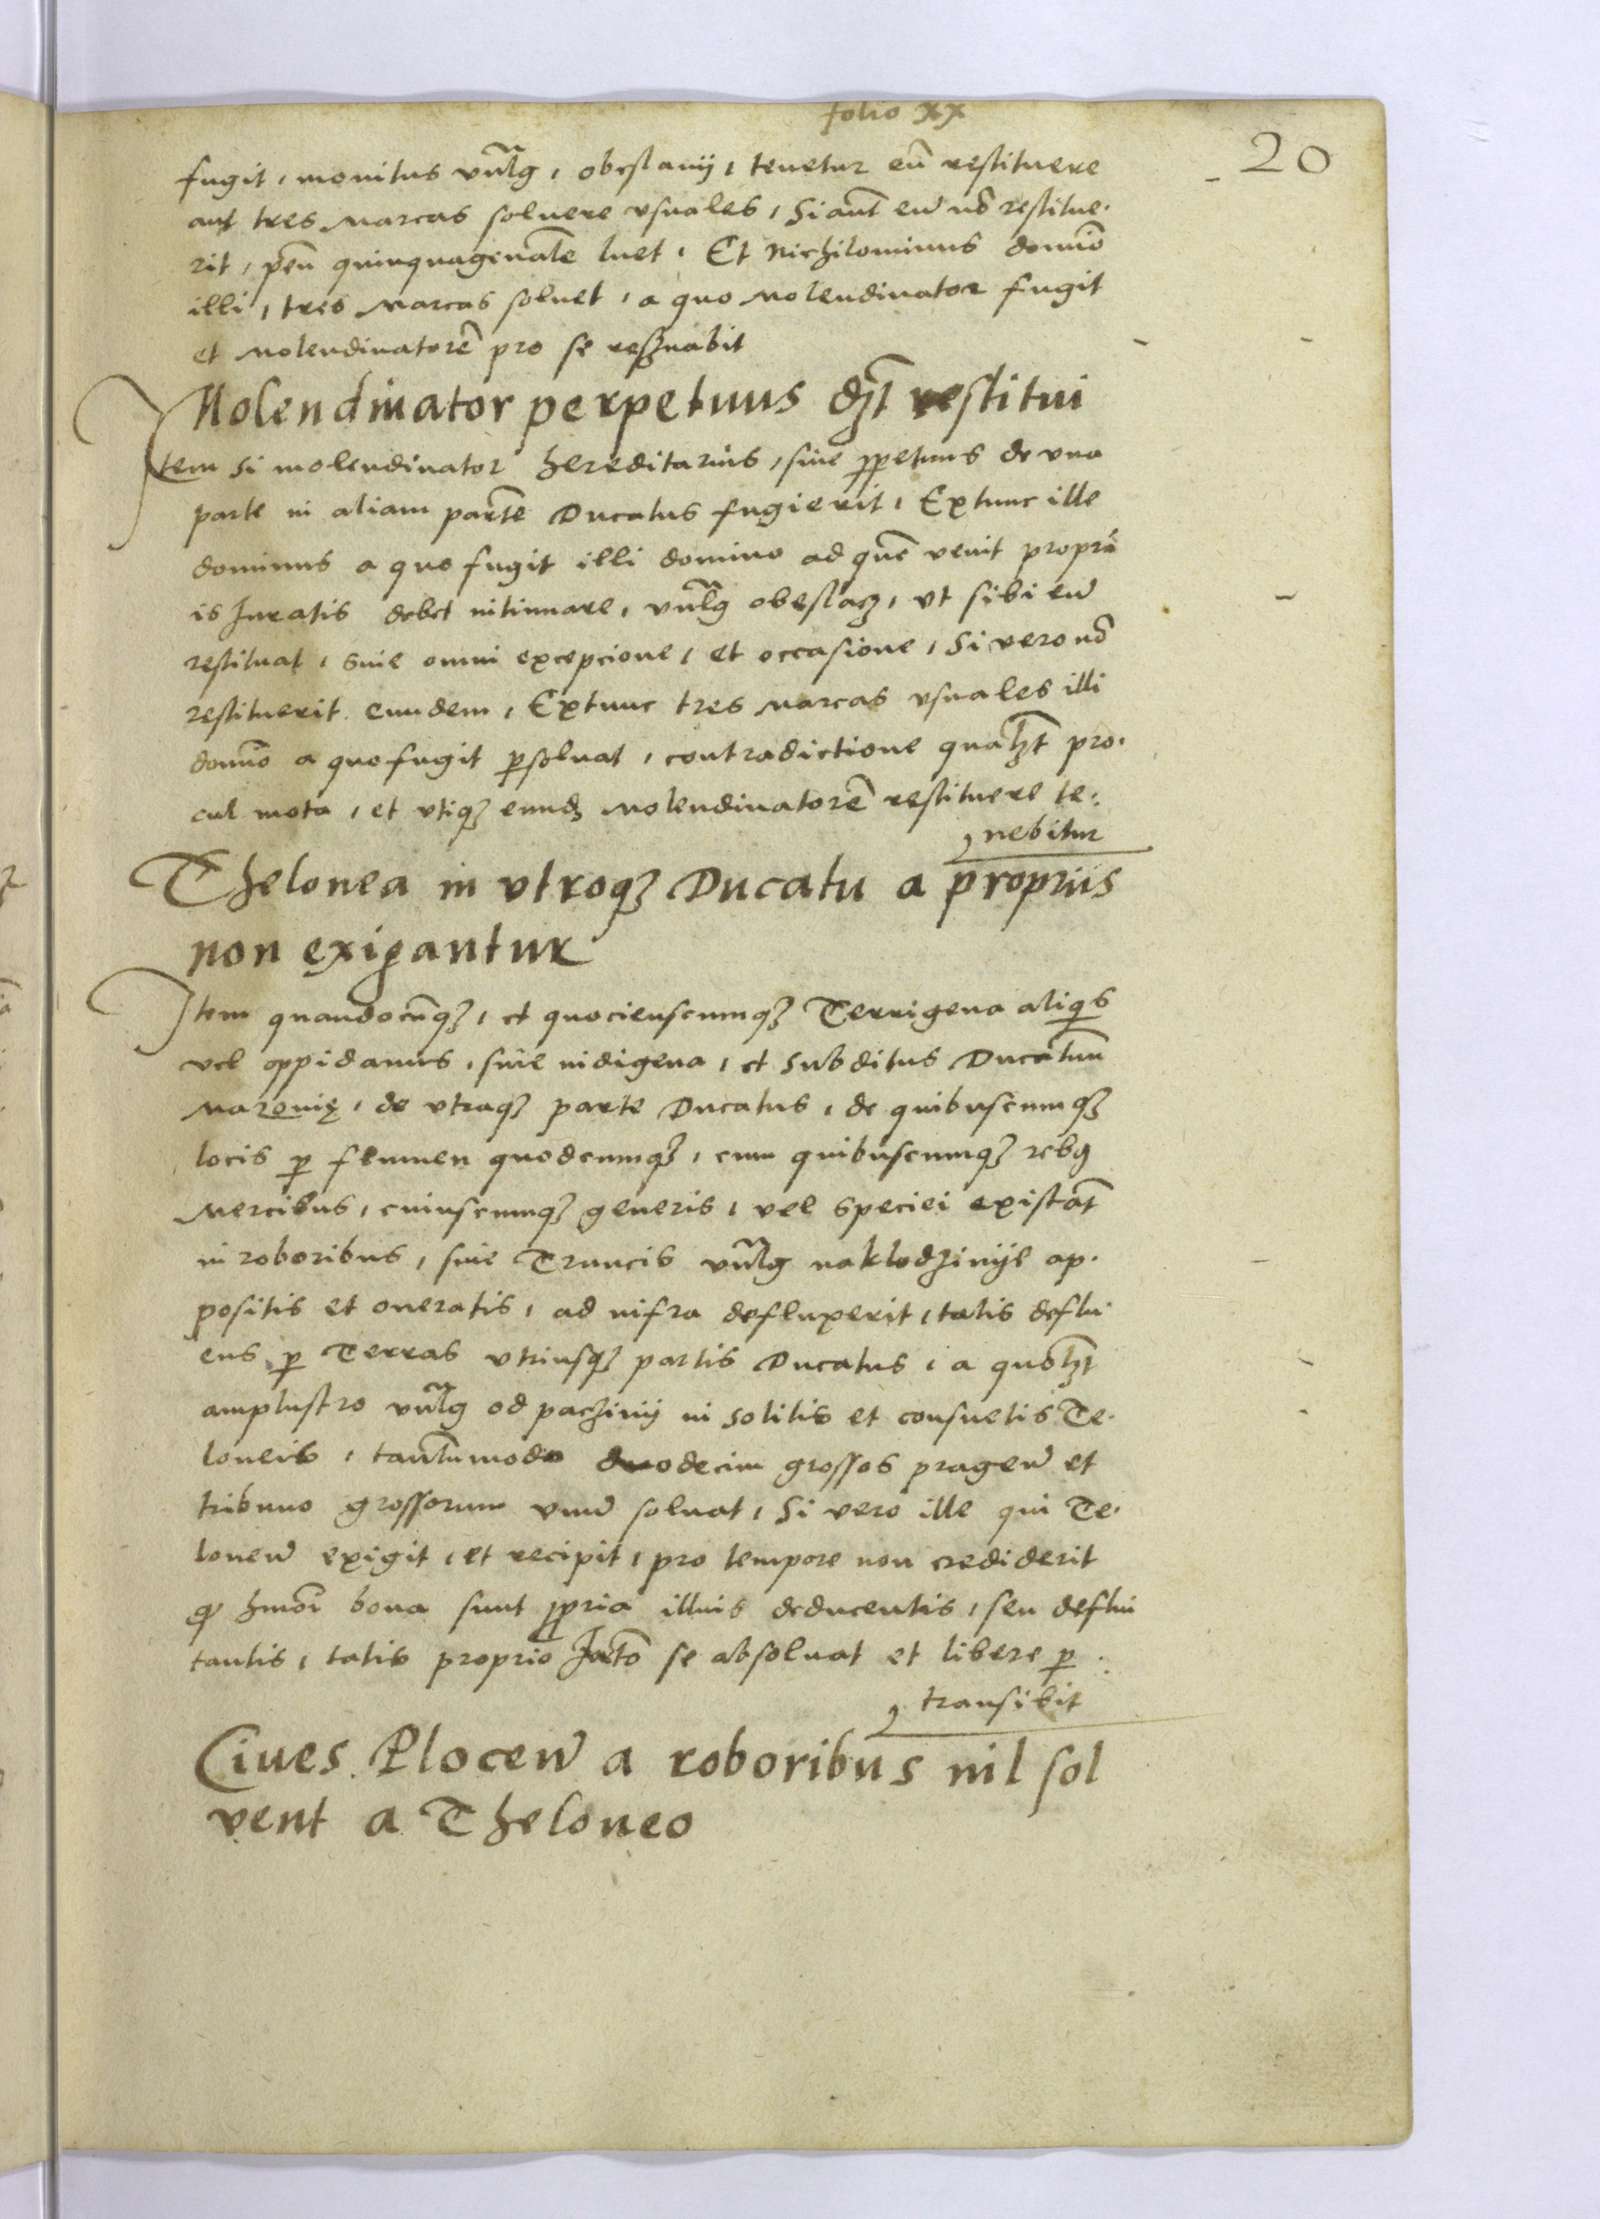 folio xx
20
fugit, monitus vulg, obeslanij, tenetur eu restituere
aut tres Marcas soluere vsuales, Si aut eu no restitue.
rit, pen quinquagenale luet, Et Nichilominus domio
illi, tres Marcas soluet, a quo Molendinator fugit
et Molendinatore pro se reseruabit
Molendinator perpetuus dz restitui
Item Si molendinator hereditarius, siue ppetuus de vna
parte in aliam parte Ducatus fugierit, Extunc ille
dominus a quo fugit illi domino ad que venit propri
is Iuratis debet intimare, vulg obeslacz, vt sibi eu
restituat, sine omni excepcione, et occasione, Si vero no
restituerit eundem, Extunc tres Marcas vsuales illi
domio a quo fugit psoluat, contradictione qualzt pro.
cul mota, et vtiqz eundz Molendinatore restituere te:
nebitur
Thelonea in vtroqz Ducatu a propriis
non exigantur
Item quandocuqz, et quociens cumqz Terrigena aliqis
vel oppidanus, siue indigena, et Subditus Ducatuu
Mazouię, de vtraqz parte Ducatus, de quibuscumqz
locis p flumen quodcumqz, cum quibuscumqz rebg
Mercibus, cuiuscumqz generis, vel speciei existat
in roboribus, siue Truncis vulg naklodzinije ap.
positis et oneratis, ad infra defluxerit, talis deflu
ens p Terras vtriusqz partis Ducatus, a quolzt
amplustro vulg od paczinij in solitis et consuetis Te.
loneis, tantumodo duodecim grossos pragen et
tribuno grossorum vnu soluat, Si vero ille qui Te.
loneu exigit, et recipit, pro tempore non crediderit
q hmoi bona sunt ppria illius deducentis, seu deflui
tantis, talis proprio Iurto se absoluat et libere p:
transibit
Ciues Plocen a roboribus nil sol
vent a Theloneo